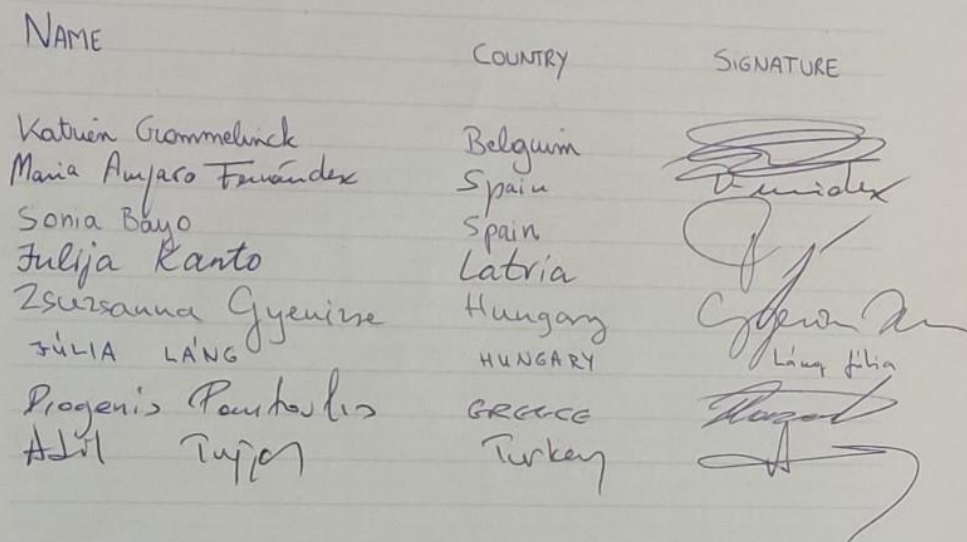 NAME COUNTRY SIGNATURE
Katrien Crommelinck Belguim
Maria Amparo Fernández Spain
Sonia Bayo Spain
Julija Kanto Latvia
Zsuzsanna Gyenizse Hungary
JÚLIA LÁNG HUNGARY Láng Júlia
Diogenis GREECE
Turkey